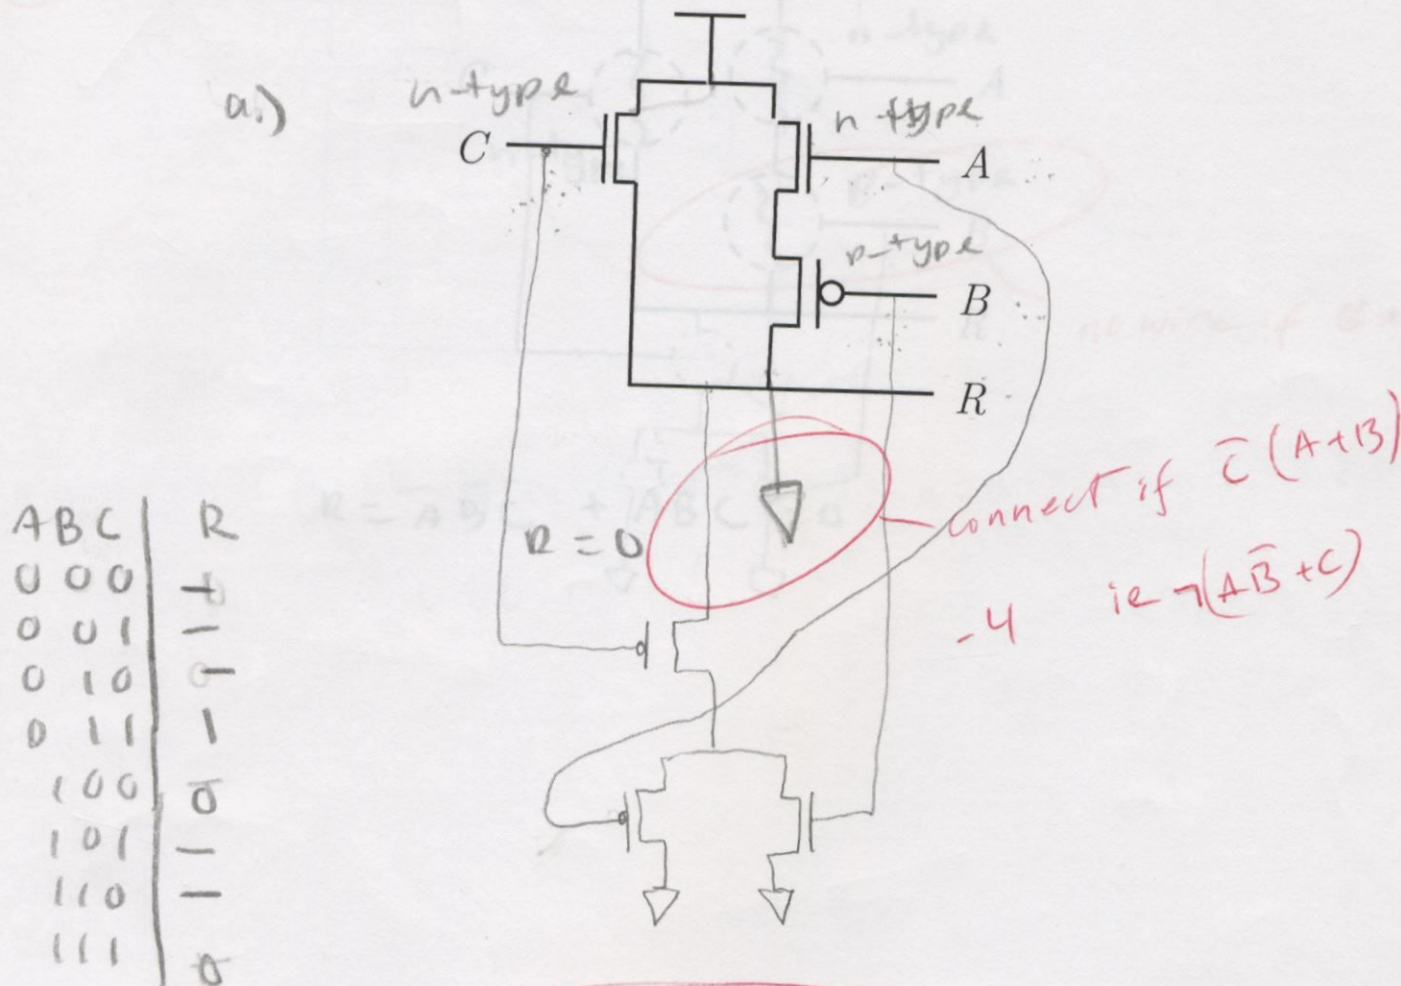 a.)
n-type
n-type
C
A
p-type
B
R
connect if C̄(A+B)
R = 0
-4 ie ¬(AB̄+C)
A B C R
0 0 0
0 0 1 –
0 1 0 –
0 1 1 1
1 0 0 0
1 0 1 –
1 1 0 –
1 1 1 0